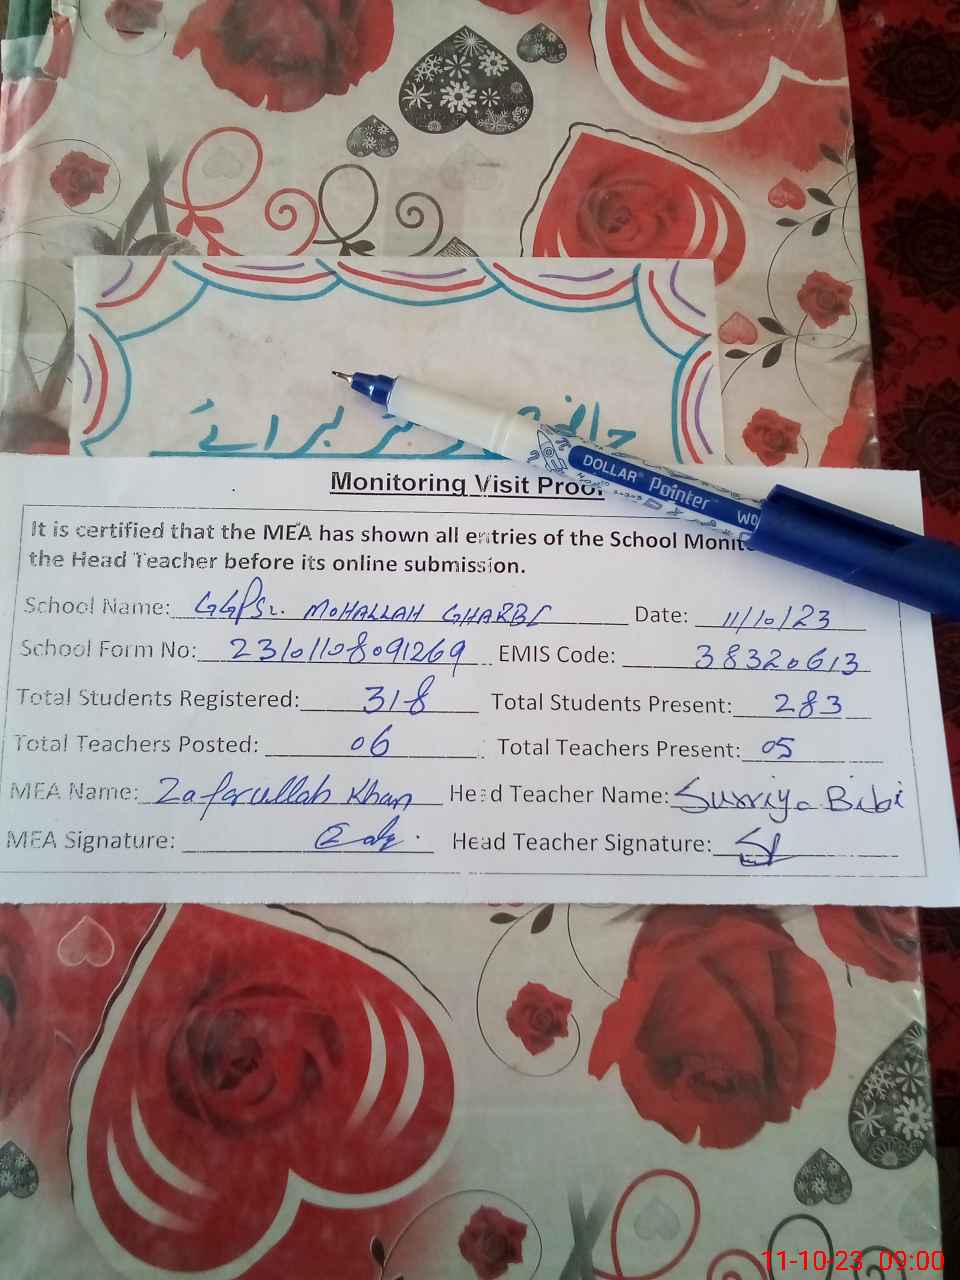 برائے
DOLLAR Pointer
Monitoring Visit Proof
It is certified that the MEA has shown all entries of the School
the Head Teacher before its online submission.
School Name: GGPS MOHALLAH GHARBI Date: 11/10/23
School Form No: 23101108091269 EMIS Code: 38320613
Total Students Registered: 318 Total Students Present: 283
Total Teachers Posted: 06 Total Teachers Present: 05
MEA Name: Zafarullah Khan Head Teacher Name: Surriya Bibi
MEA Signature: Head Teacher Signature:
11-10-23 09:00